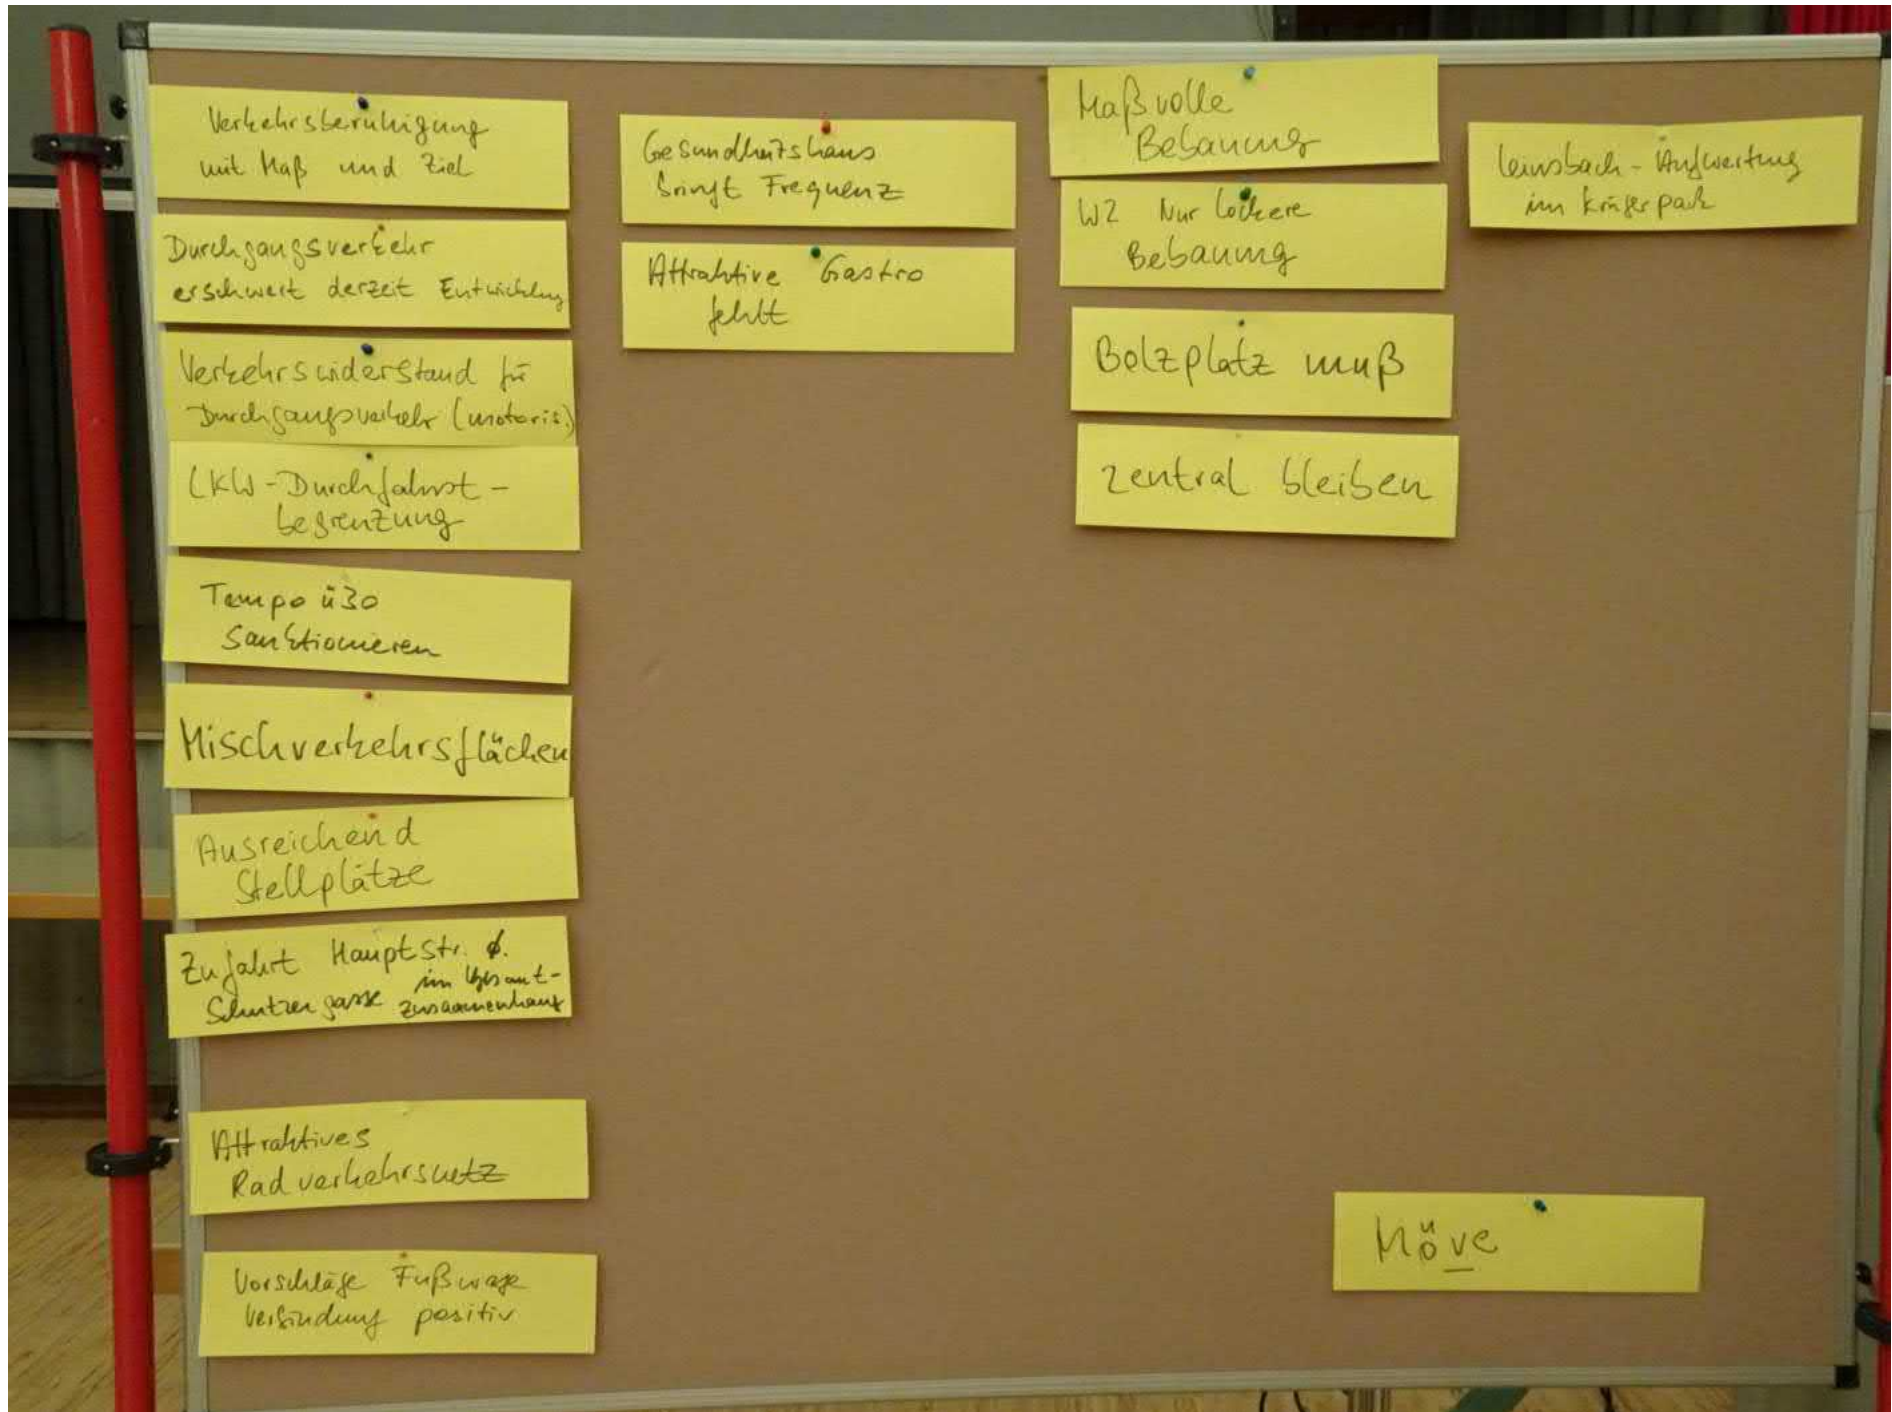 Verkehrsberuhigung
mit Maß und Ziel
Durchgangsverkehr
erschwert derzeit Entwicklung
Verkehrswiderstand für
Durchgangsverkehr (motoris.)
LKW-Durchfahrt-
begrenzung
Tempo ü30
sanktionieren
Mischverkehrsflächen
Ausreichend
Stellplätze
Zufahrt Hauptstr.
im Gesamt-
Schutzengasse
zusammenhang
Attraktives
Radverkehrsnetz
Vorschläge Fußwege
Verbindung positiv
Gesundheitshaus
bringt Frequenz
Attraktive Gastro
fehlt
Maßvolle
Bebauung
W2 Nur lockere
Bebauung
Bolzplatz muß
zentral bleiben
Aufwertung
im Krügerpark
Möve